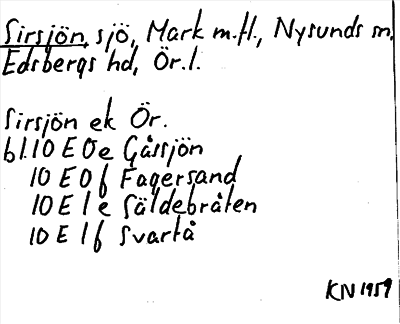 Sirsjön, sjö, Mark m.fl., Nysunds sn,
Edsbergs hd, Ör.l.
Sirsjön ek Ör.
bl.10 E 0 e Gåssjön
10 E 0 f Fagersand
10 E 1 e Säldebråten
10 E 1 f Svartå
KN 1959